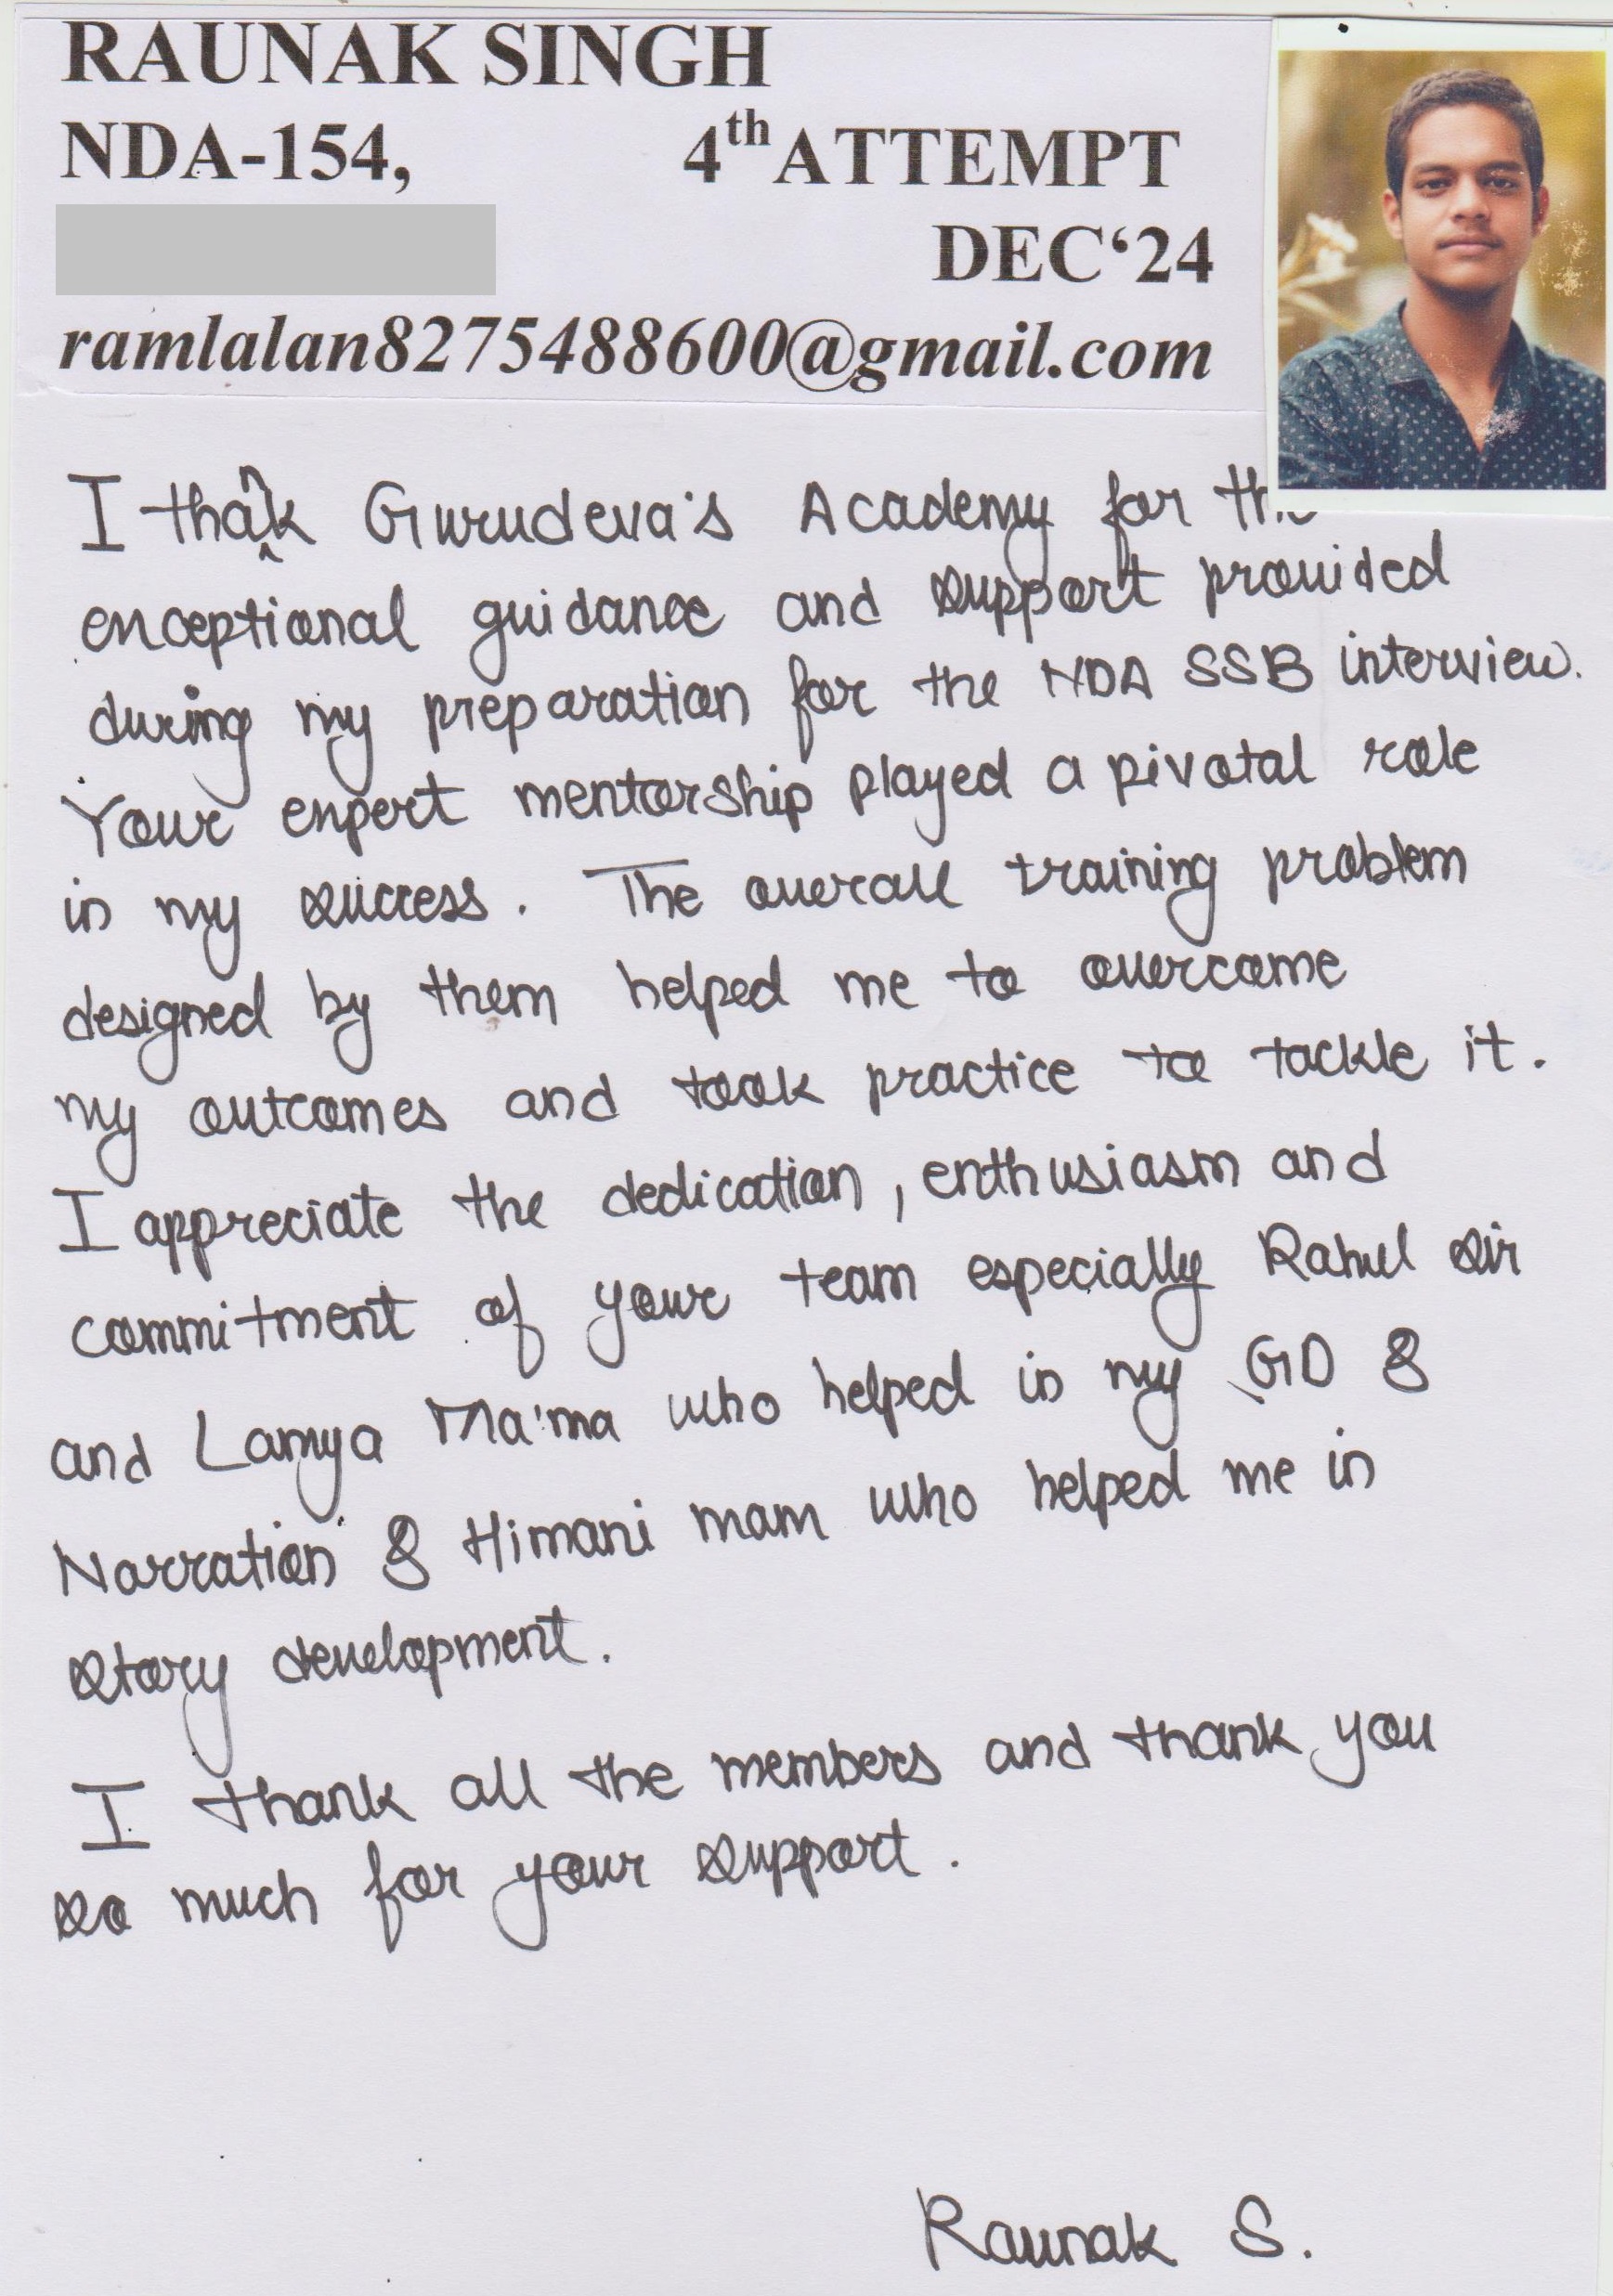 RAUNAK SINGH
NDA-154, 4th ATTEMPT
DEC‘24
ramlalan8275488600@gmail.com
I thank Gurudeva's Academy for the
exceptional guidance and support provided
during my preparation for the NDA SSB interview.
Your expert mentorship played a pivotal role
in my success. The overall training problem
designed by them helped me to overcome
my outcomes and took practice to tackle it.
I appreciate the dedication, enthusiasm and
commitment of your team especially Rahul sir
and Lamya Ma'ma who helped in my GD &
Narration & Himani mam who helped me in
story development.
I thank all the members and thank you
so much for your support.
Raunak S.